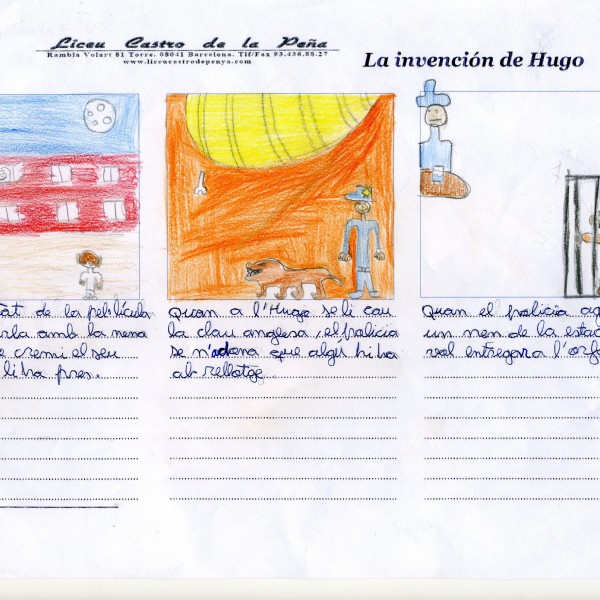 Liceu Castro de la Peña
Rambla Volart 81 Torre. 08041 Barcelona. Tlf/Fax 93.436.88.27
www.liceucastrodepenya.com
La invención de Hugo
de la pel·lícula
rla amb la nena
e cremi el seu
li ha pres.
Quan a l'Hugo se li cau
la clau anglesa, el policia
se n'adona que algú hi ha
al rellotge.
Quan el policia ag
un nen de la estac
val entregara l'orf